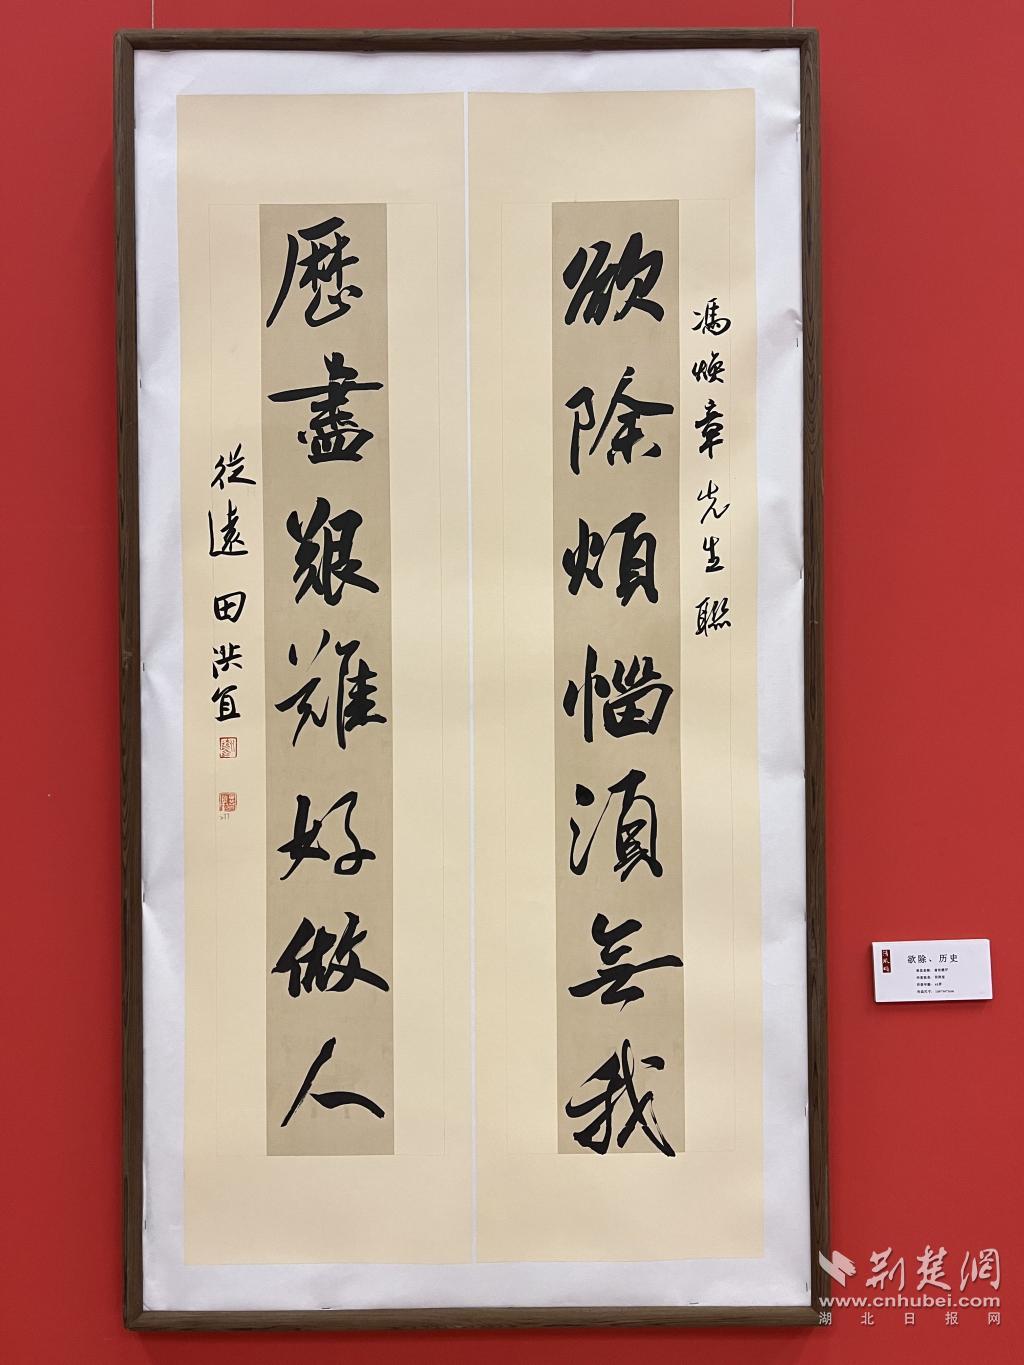 馮煥章先生聯
欲除煩惱須無我
歷盡艱難好做人
從遠 田洪宜
欲除、历史
荆楚網
www.cnhubei.com
湖北日报网